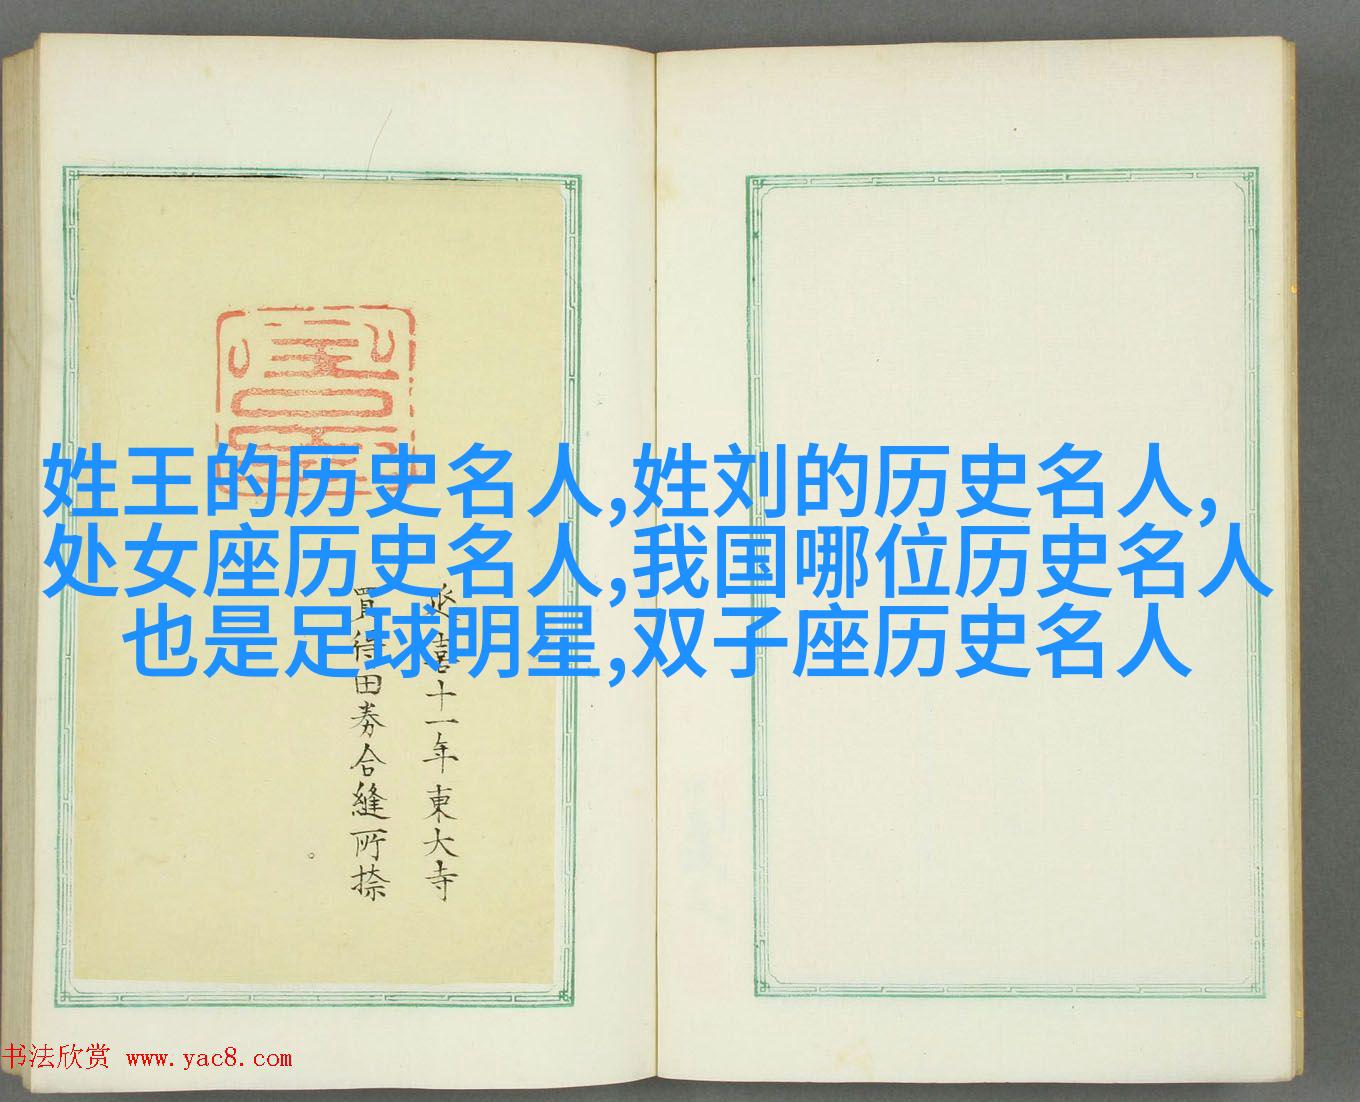 姓王的历史名人,姓刘的历史名人,
处女座历史名人,我国哪位历史名人
也是足球明星,双子座历史名人
延喜十一年東大寺
買得田券合縫所捺
书法欣赏 www.yac8.com